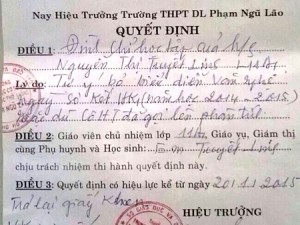 Nay Hiệu Trưởng Trường THPT DL Phạm Ngũ Lão
QUYẾT ĐỊNH
ĐIỀU 1: Đình chỉ học tập của h/s
Nguyễn Thị Tuyết Linh L11A1
Lý do: Tự ý bỏ biểu diễn văn nghệ
ngày Sơ Kết HKI (năm học 2014-2015)
mặc dù Cô HT đã gọi lên phân tích
ĐIỀU 2: Giáo viên chủ nhiệm lớp 11A1, Giáo vụ, Giám thị
cùng Phụ huynh và Học sinh: Em Tuyết Linh
chịu trách nhiệm thi hành quyết định này.
ĐIỀU 3: Quyết định có hiệu lực kể từ ngày 20/1/2015
Trở lại quấy
HIỆU TRƯỞNG